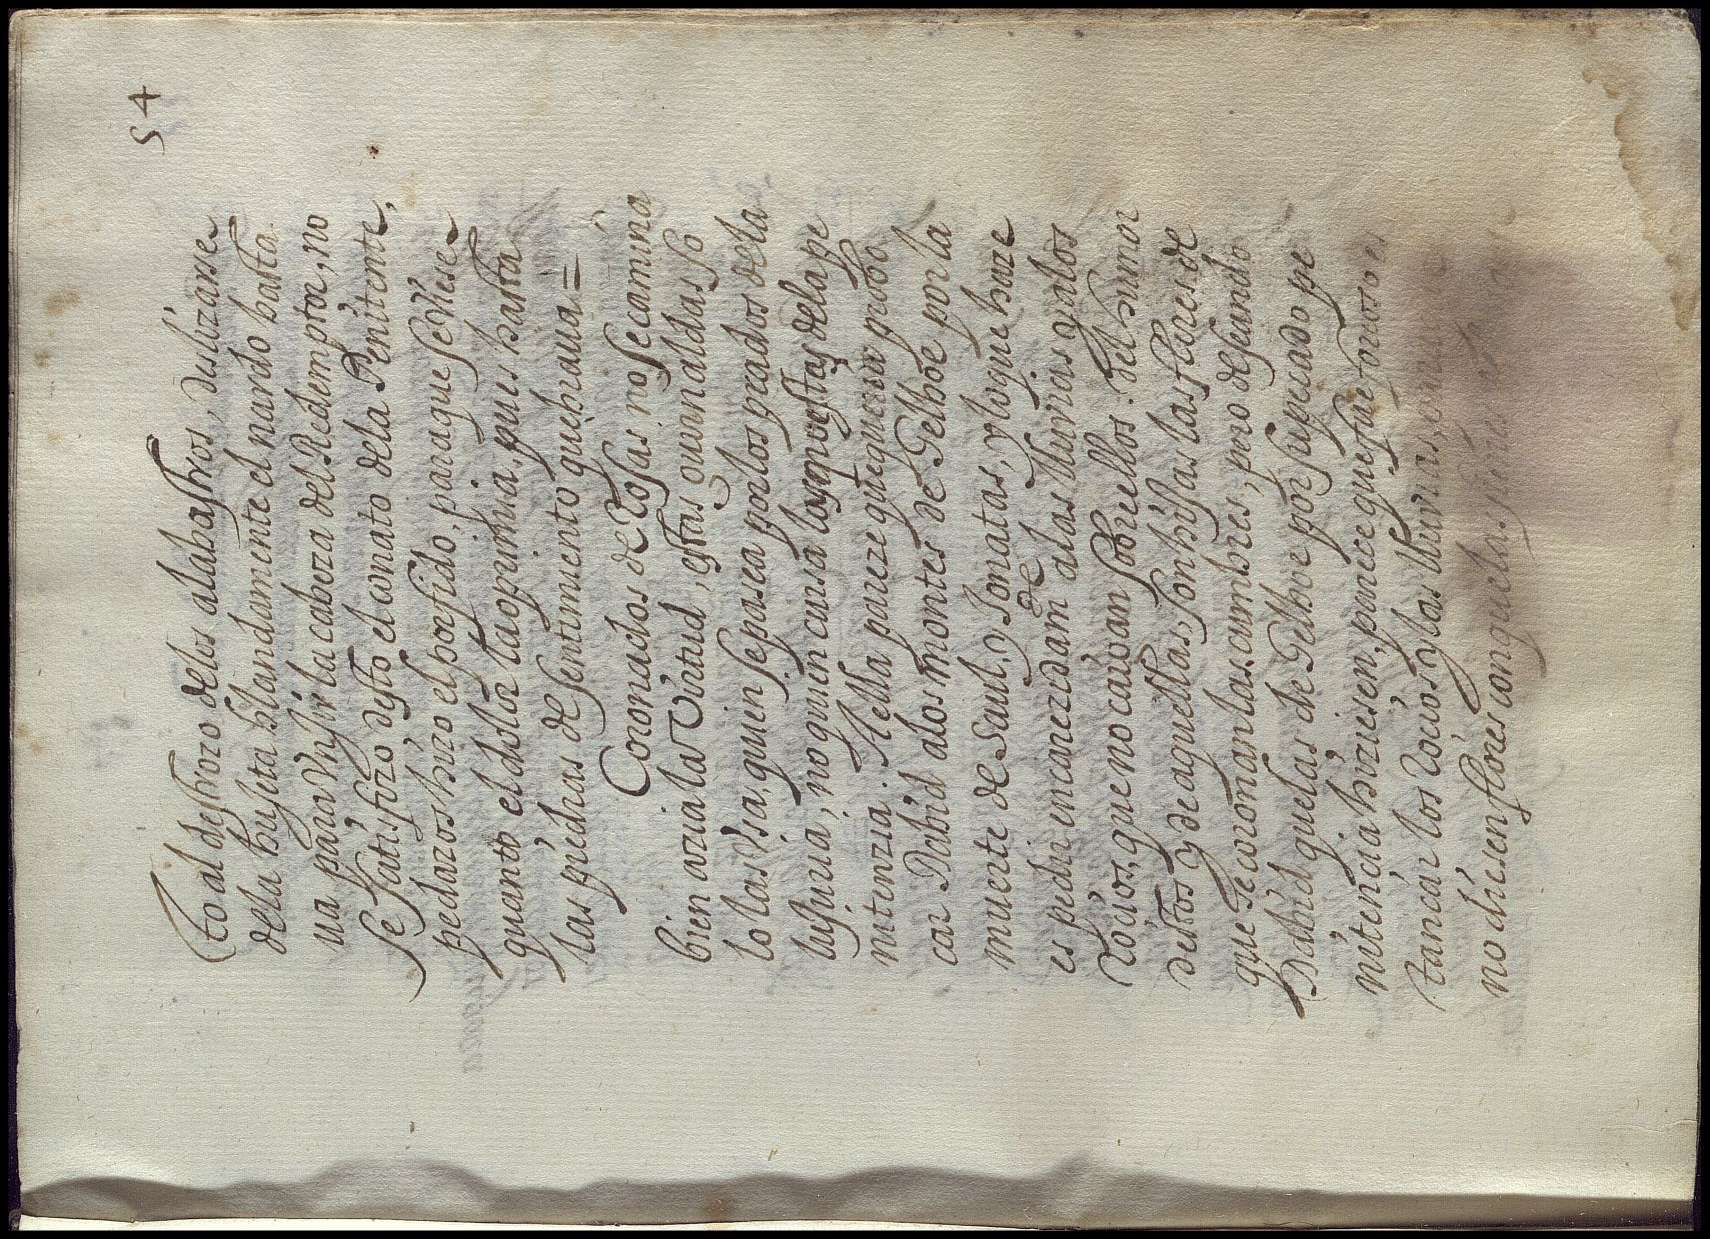 54
to al destrozo delos alabastros, deslizarse
dela busета blandamente el nardo basta
ua para Vnjir la cabeza del Redemptor, no
se satisfizo desto el conato dela Penitente,
pedazos hizo el porfido, para que se viese
quanto el dolor la oprimia, pues hasta
las piedras de sentimiento quebraua =
Coronados de Rosas no se camina
bien azia la Virtud, estas guirnaldas so
lo las Vsa, quien se pasea por los prados de la
lujuria, no quien cursa los montes de la pe
nitenzia. Mella pareze que
car Dabid alos montes de Gelboe por la
muerte de Saul, y Jonatas, y lo que haze
es pedir encarezidam de alas lluuias y alos
Rócios, que no caigan sobre ellos. Del humor
destos y de aquellas, son hijas las flores de
que se coronan las cumbres, pero deseando
Dabid que las de Gelboe por su pecado pe
nitencia hiziesen, parece que fue forzoso es
tancar los Rócios y las lluuias,
no diesen flores con que